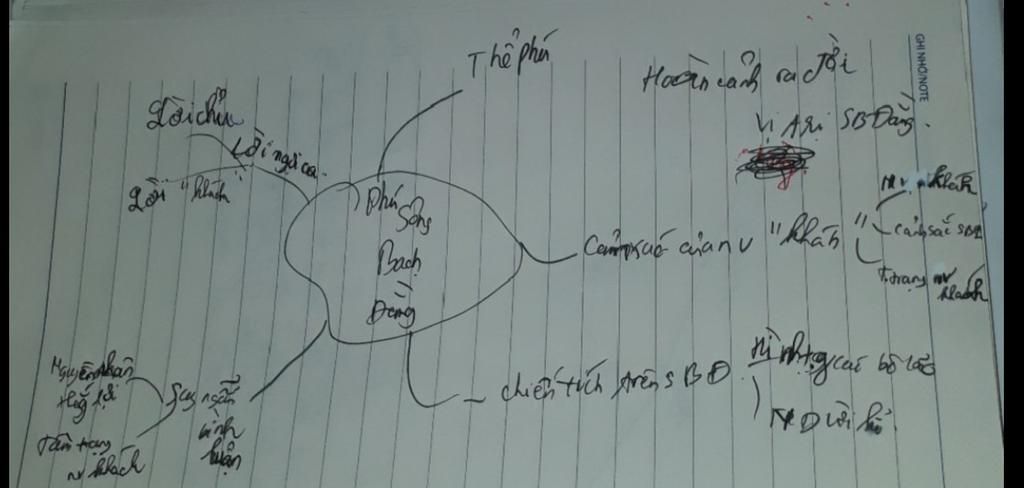 Thể phú
Hoàn cảnh ra đời
Vị trí SBĐằng.
Lời chủ
Lời ngợi ca
Lời "khách"
Phú
Sông
Bạch
Đằng
Cảm xúc của nv "khách"
nv khách
Cảnh sắc SBĐ
T.trạng nv
khách
- chiến tích trên SBĐ
Hình tượng các bô lão
ND lời kể
Suy ngẫm
bình
luận
Nguyên nhân
thắng lợi
Tâm trạng
nv khách
GHI NHỚ/NOTE